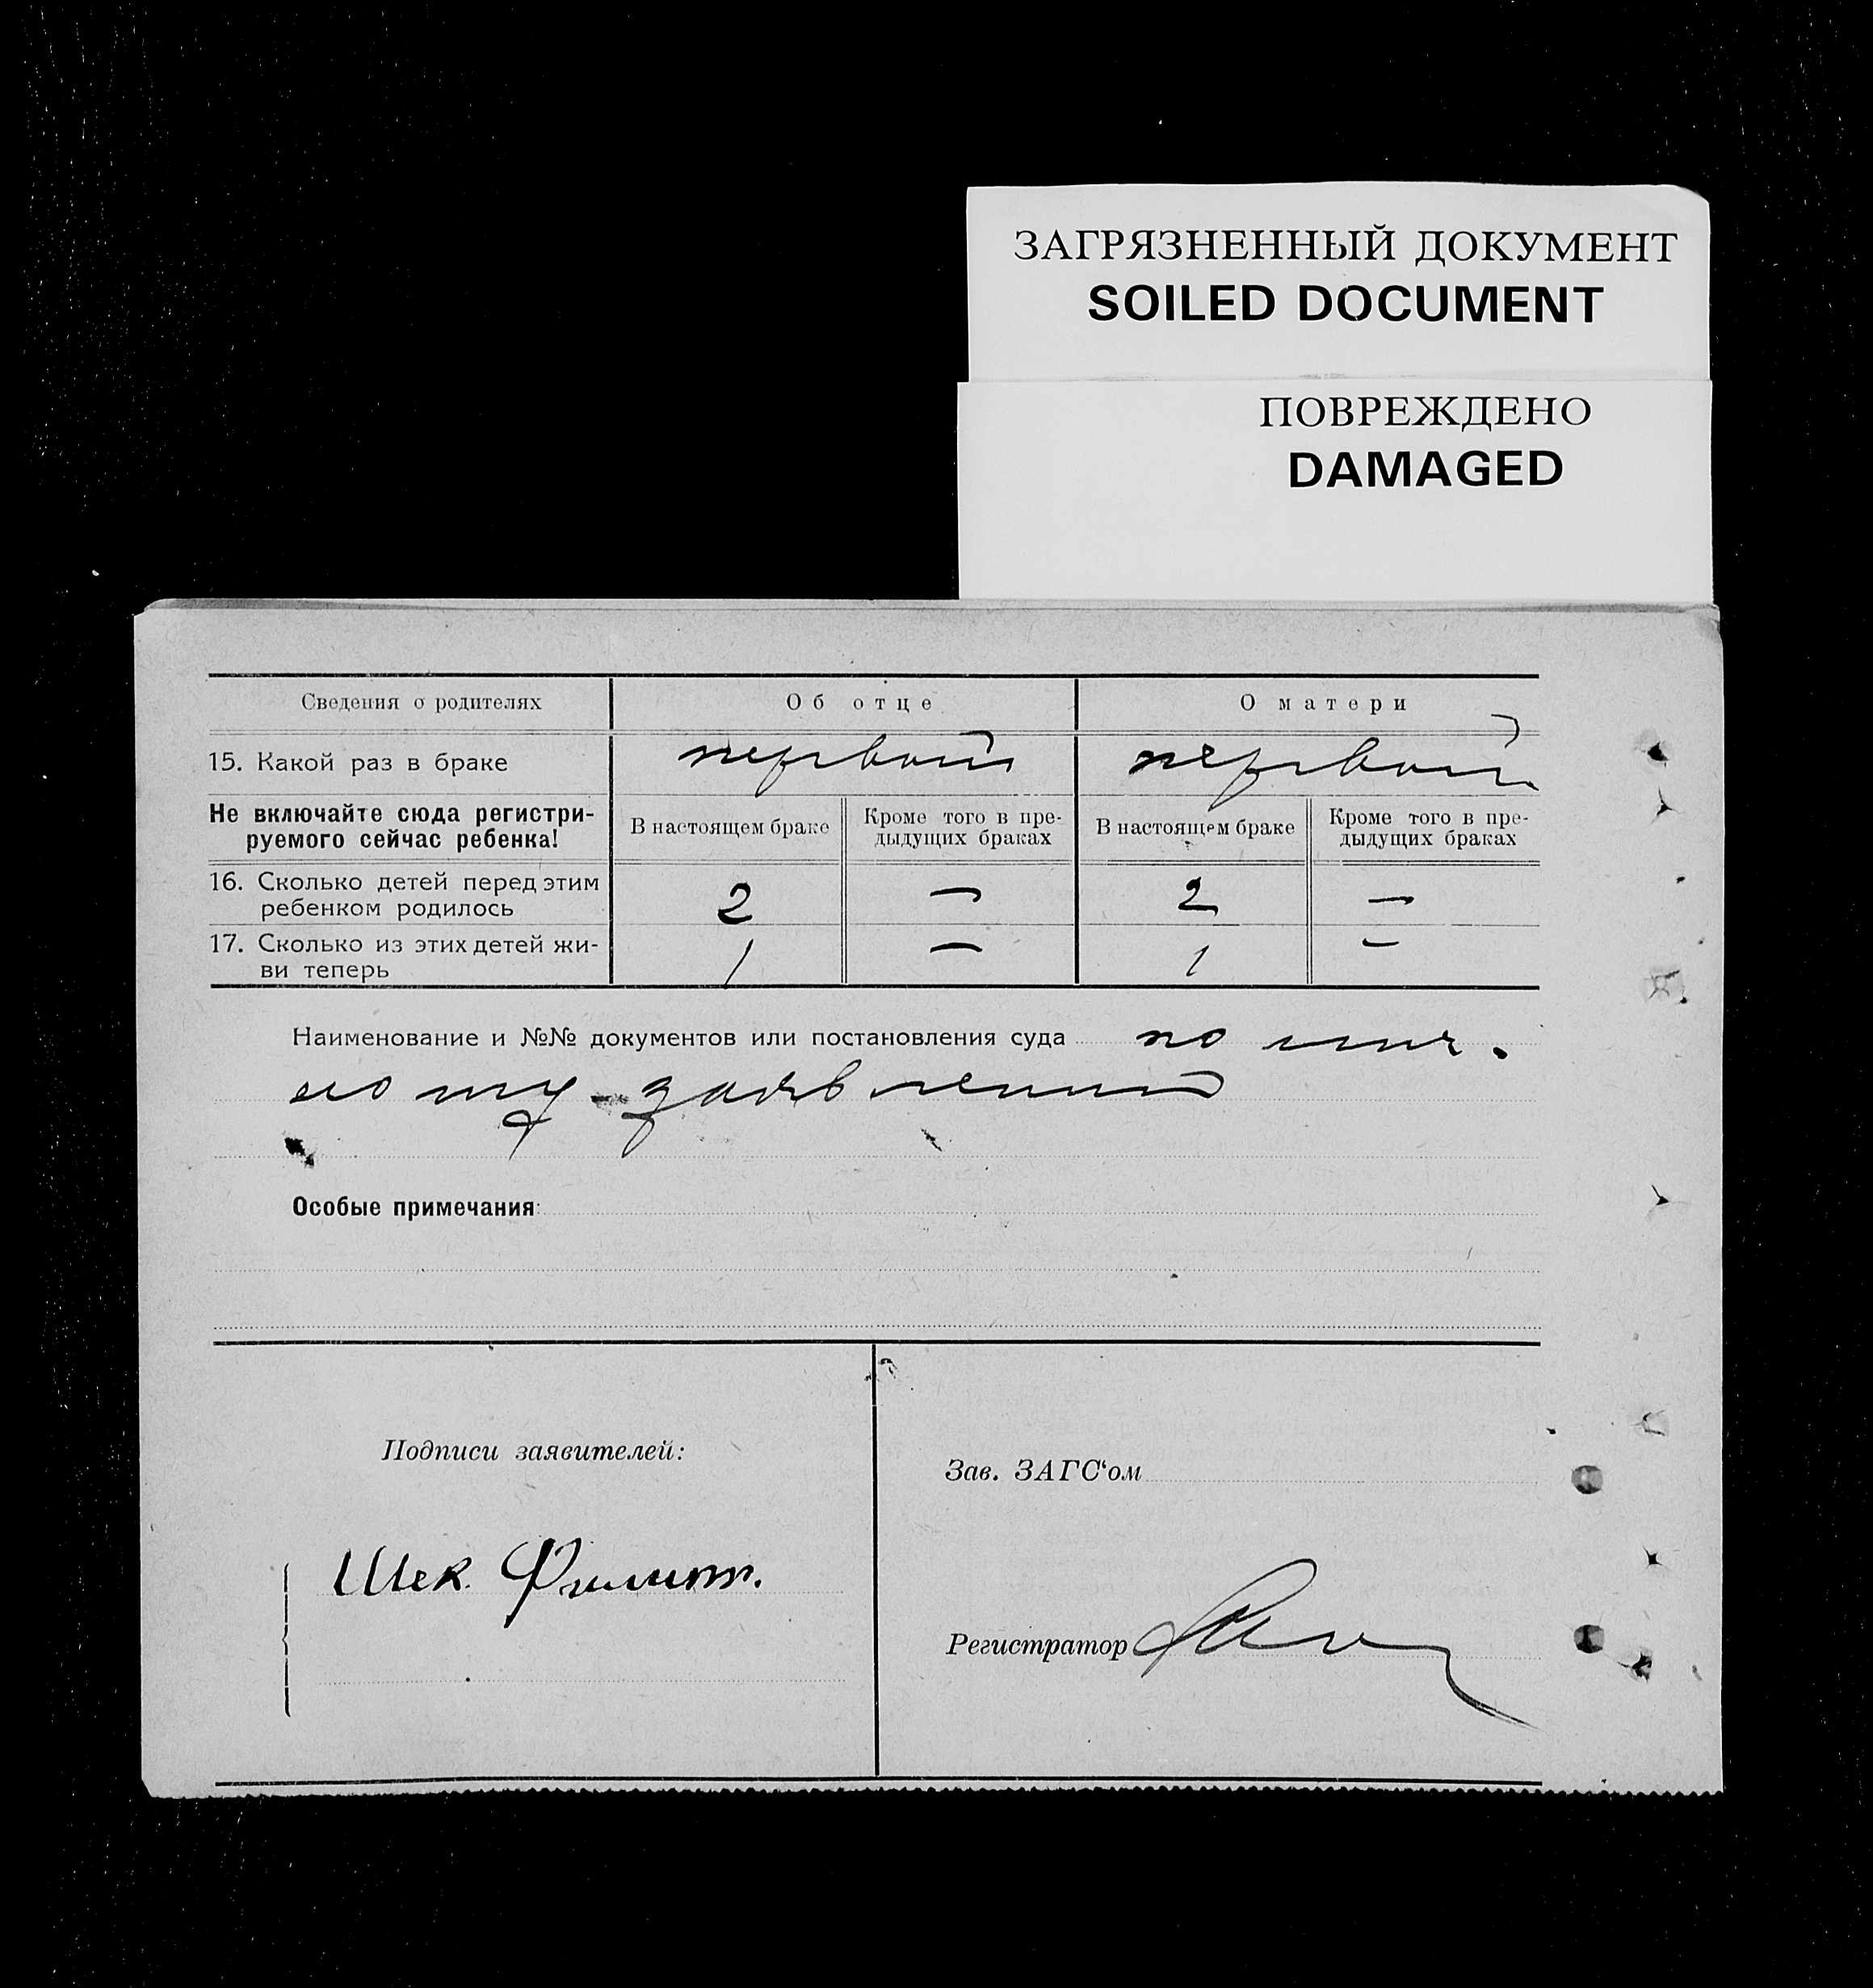 ЗАГРЯЗНЕННЫЙ ДОКУМЕНТ
SOILED DOCUMENT
ПОВРЕЖДЕНО
DAMAGED
Сведения о родителях Об отце О матери
15. Какой раз в браке первый первый
Не включайте сюда регистри-
руемого сейчас ребенка!
В настоящем браке Кроме того в пре-
дыдущих браках
В настоящем браке Кроме того в пре-
дыдущих браках
16. Сколько детей перед этим
ребенком родилось 2 — 2 —
17. Сколько из этих детей жи-
ви теперь 1 — 1 —
Наименование и №№ документов или постановления суда по лич.
ному заявлению
Особые примечания:
Подписи заявителей:
Зав. ЗАГС‘ом
Шек. Филипп.
Регистратор